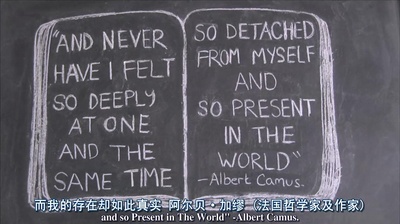 "AND NEVER
HAVE I FELT
SO DEEPLY
AT ONE
AND THE
SAME TIME
SO DETACHED
FROM MYSELF
AND
SO PRESENT
IN THE
WORLD"
-Albert Camus.
而我的存在却如此真实 阿尔贝·加缪（法国哲学家及作家）
and so Present in The World" -Albert Camus.